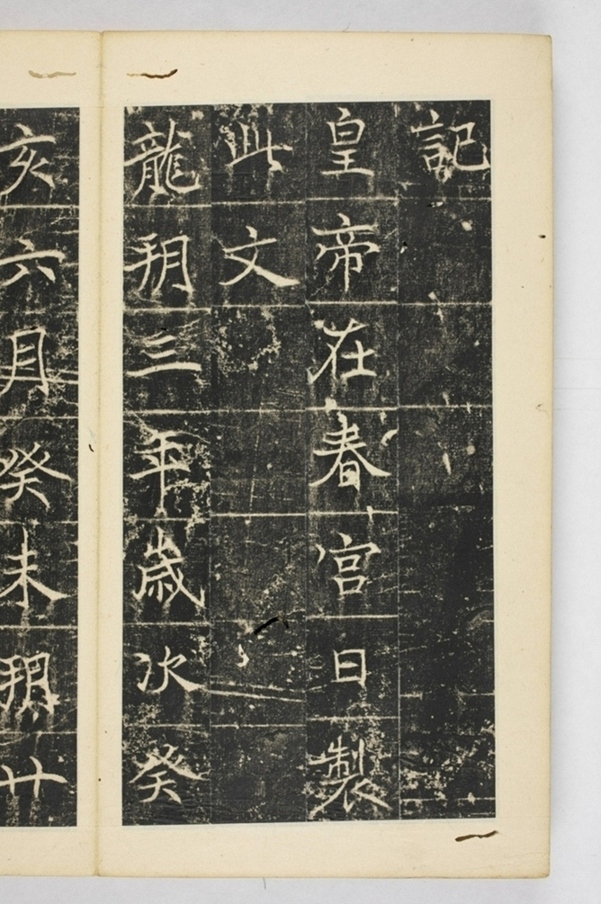 記
皇帝在春宮日製
此文
龍朔三年歲次癸
亥六月癸未朔廿